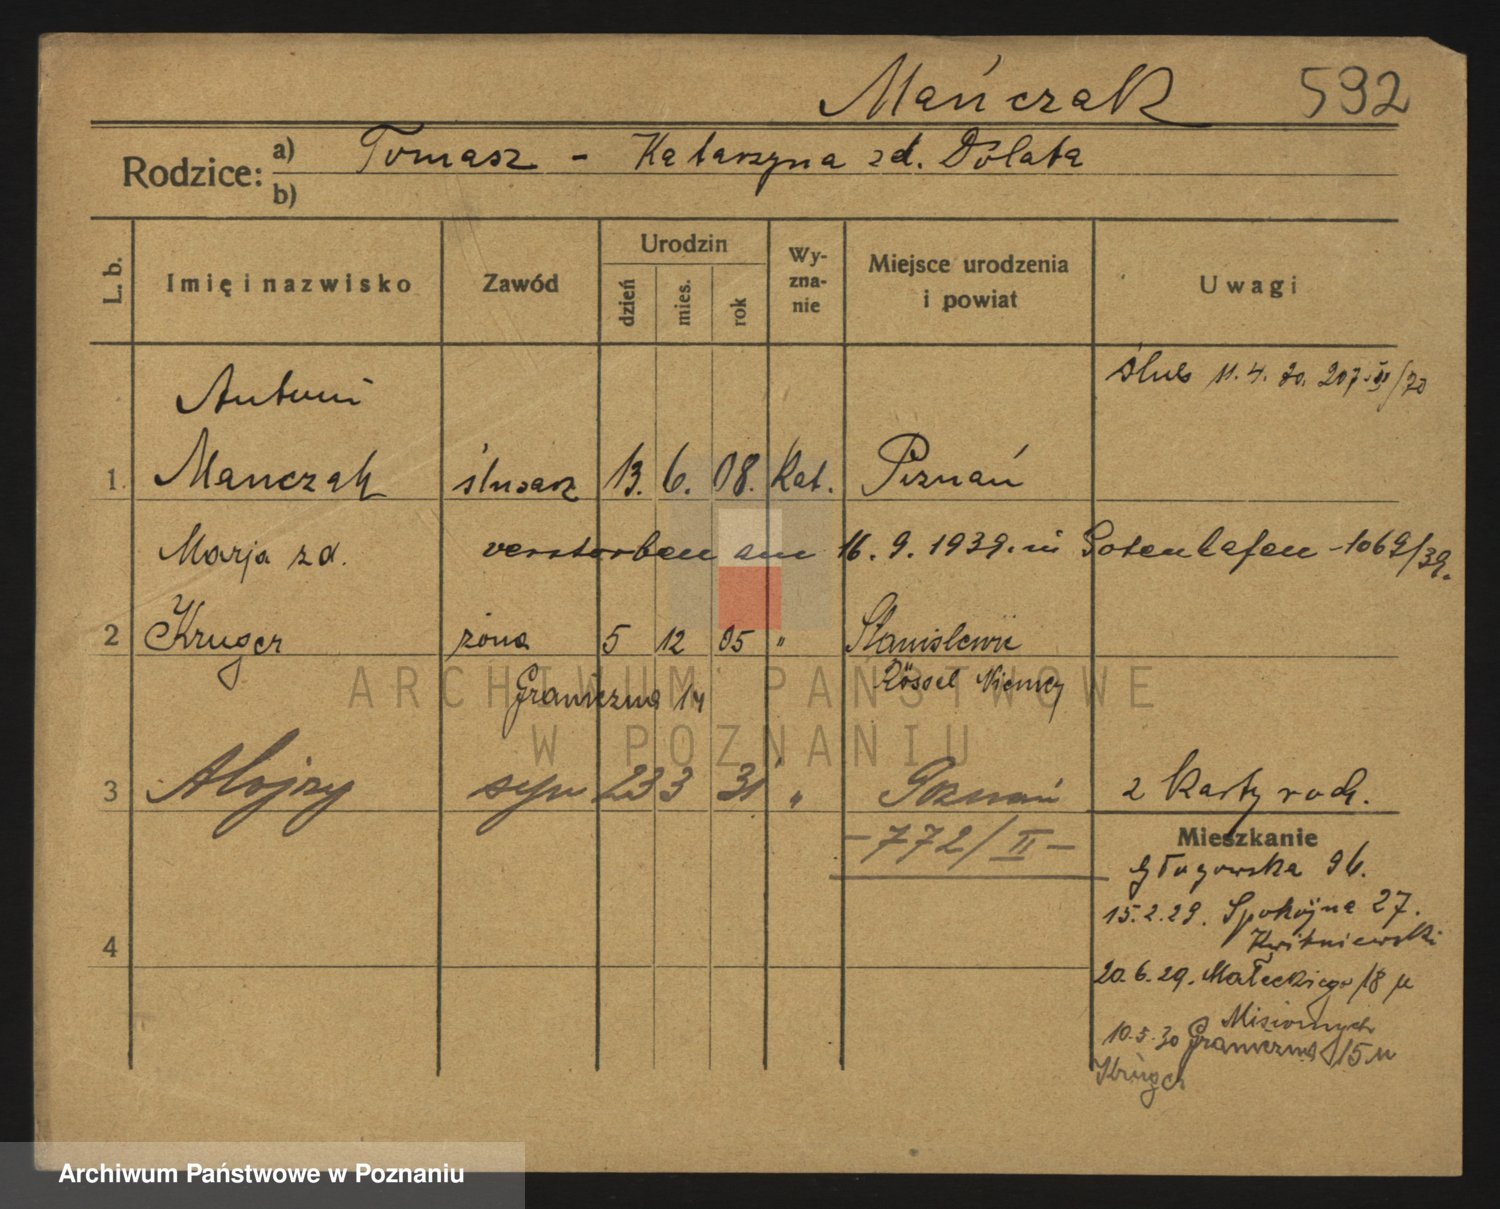 Mańczak 592
Rodzice: a) Tomasz - Katarzyna zd. Dolata
b)
L. b. Imię i nazwisko Zawód Urodzin dzień mies. rok Wyznanie Miejsce urodzenia i powiat Uwagi
ślub 11.4.30. 207 /30
Antoni
1. Manczak ślusarz 13. 6. 08. Kat. Poznań
Marja zd. verstorben am 16.9.1939. in Gotenhafen - 1069/39.
2 Kruger żona 5 12 05 " Stanislewie
Graniczna Rössel Niemcy
3 Alojzy syn 23 3 31 " Poznań 2 Karty rodz.
-772/II-
Mieszkanie
Głogowska 96.
15.2.29. Spokojna 27.
Kwitniewski
4
20.6.29. Małeckiego 18
10.5.30 Graniczna 15
Krüger
ARCHIWUM PAŃSTWOWE
W POZNANIU
Archiwum Państwowe w Poznaniu